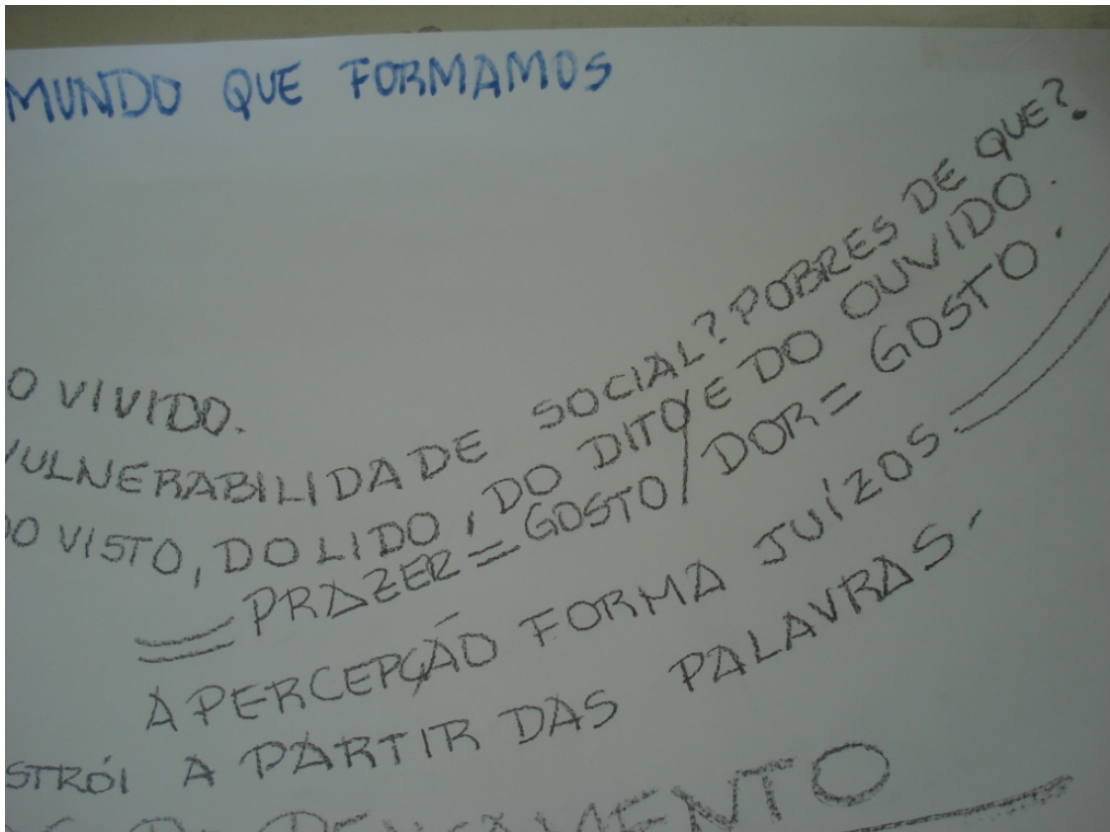 MUNDO QUE FORMAMOS
O VIVIDO.
VULNERABILIDADE SOCIAL? POBRES DE QUE?
DO VISTO, DO LIDO, DO DITO E DO OUVIDO.
= PRAZER = GOSTO / DOR = GOSTO.
A PERCEPÇÃO FORMA JUÍZOS =
STRÓI A PARTIR DAS PALAVRAS.
PENSAMENTO